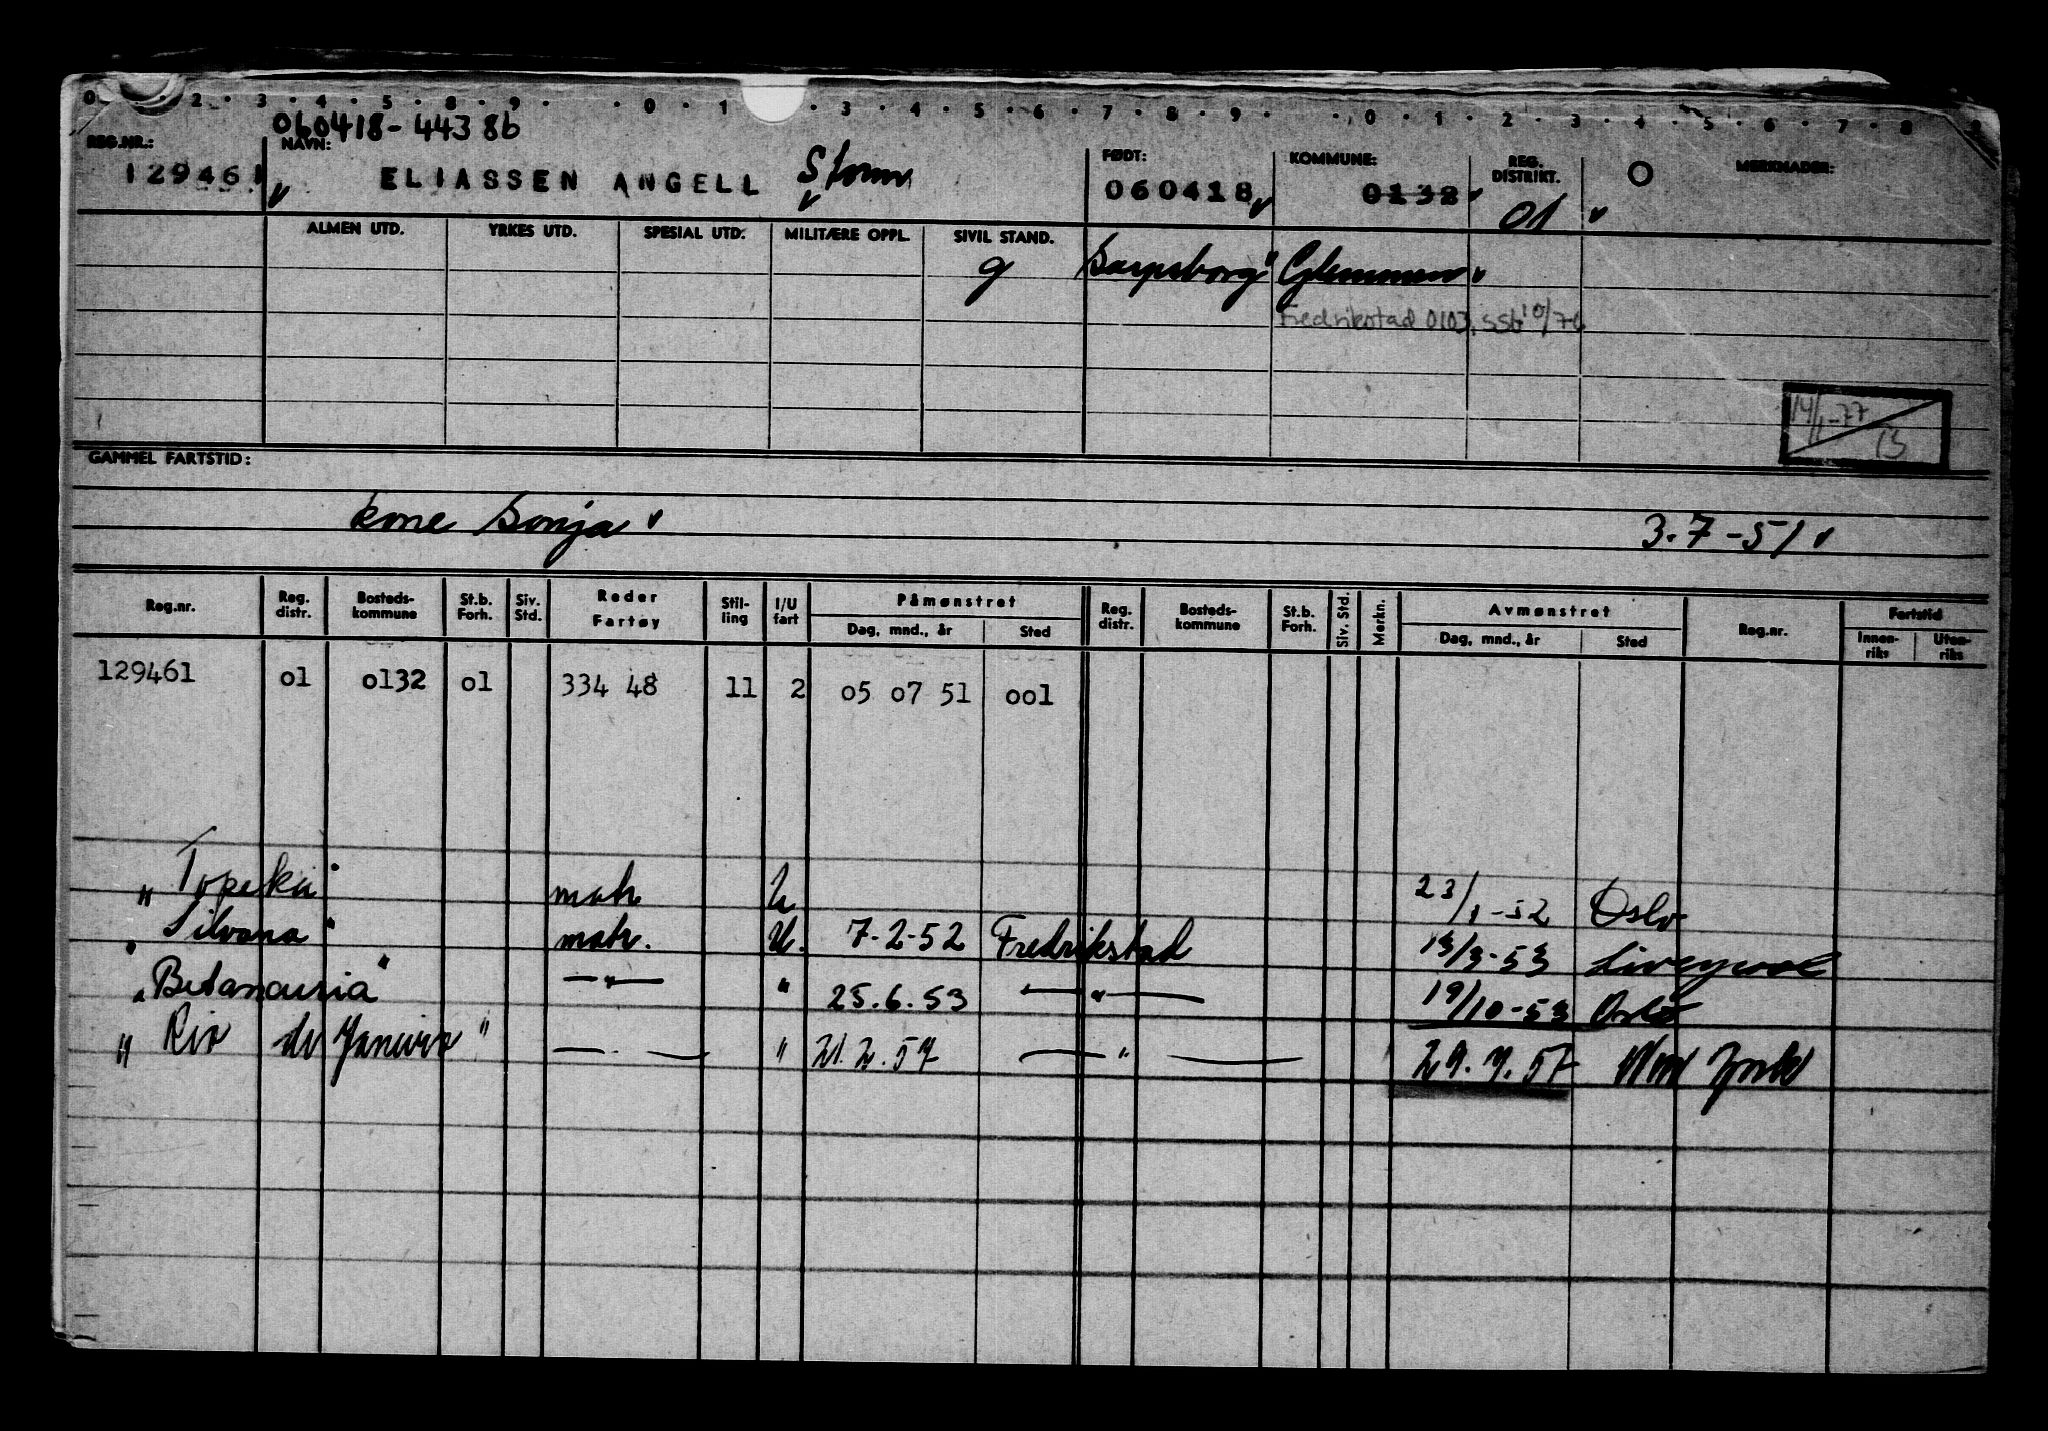 0 . 2 . 3 . 4 . 5 . 8 . 9 . . 0 . 1 . 3 . 4 . 5 . 6 . 7 . 8 . 9 . . 0 . 1 . 2 . 3 . 4 . 5 . 6 . 7 . 8 . 9
060418-44386
REG.NR.: NAVN: FØDT: KOMMUNE: REG. DISTRIKT. MERKNADER:
129461 ELIASSEN ANGELL Storm 060418 0132 01
ALMEN UTD. YRKES UTD. SPESIAL UTD. MILITÆRE OPPL. SIVIL STAND.
g Sarpsborg Glemmen
Fredrikstad 0103, SSB 10/76
14/1-77
GAMMEL FARTSTID:
kone Sonja 3.7-51
Reg.nr. Reg. distr. Bosteds-kommune St.b. Forh. Siv. Std. Reder Fartøy Stil-ling I/U fart Påmønstret Dag, mnd., år Sted Reg. distr. Bosteds-kommune St.b. Forh. Siv. Std. Merkn. Avmønstret Dag, mnd., år Sted Reg.nr. Fartstid Innen-riks Uten-riks
129461 01 0132 01 334 48 11 2 05 07 51 001
"Topeka" matr. U 23/1-52 Oslo
"Silvana" matr. U. 7.2-52 Fredrikstad 13/3-53 Liverpool
"Betancuria" —"— " 25.6.53 —"— 19/10-53 Oslo
"Rio de Janeiro" — — " 21.2.57 —"— 29.7.57 New York